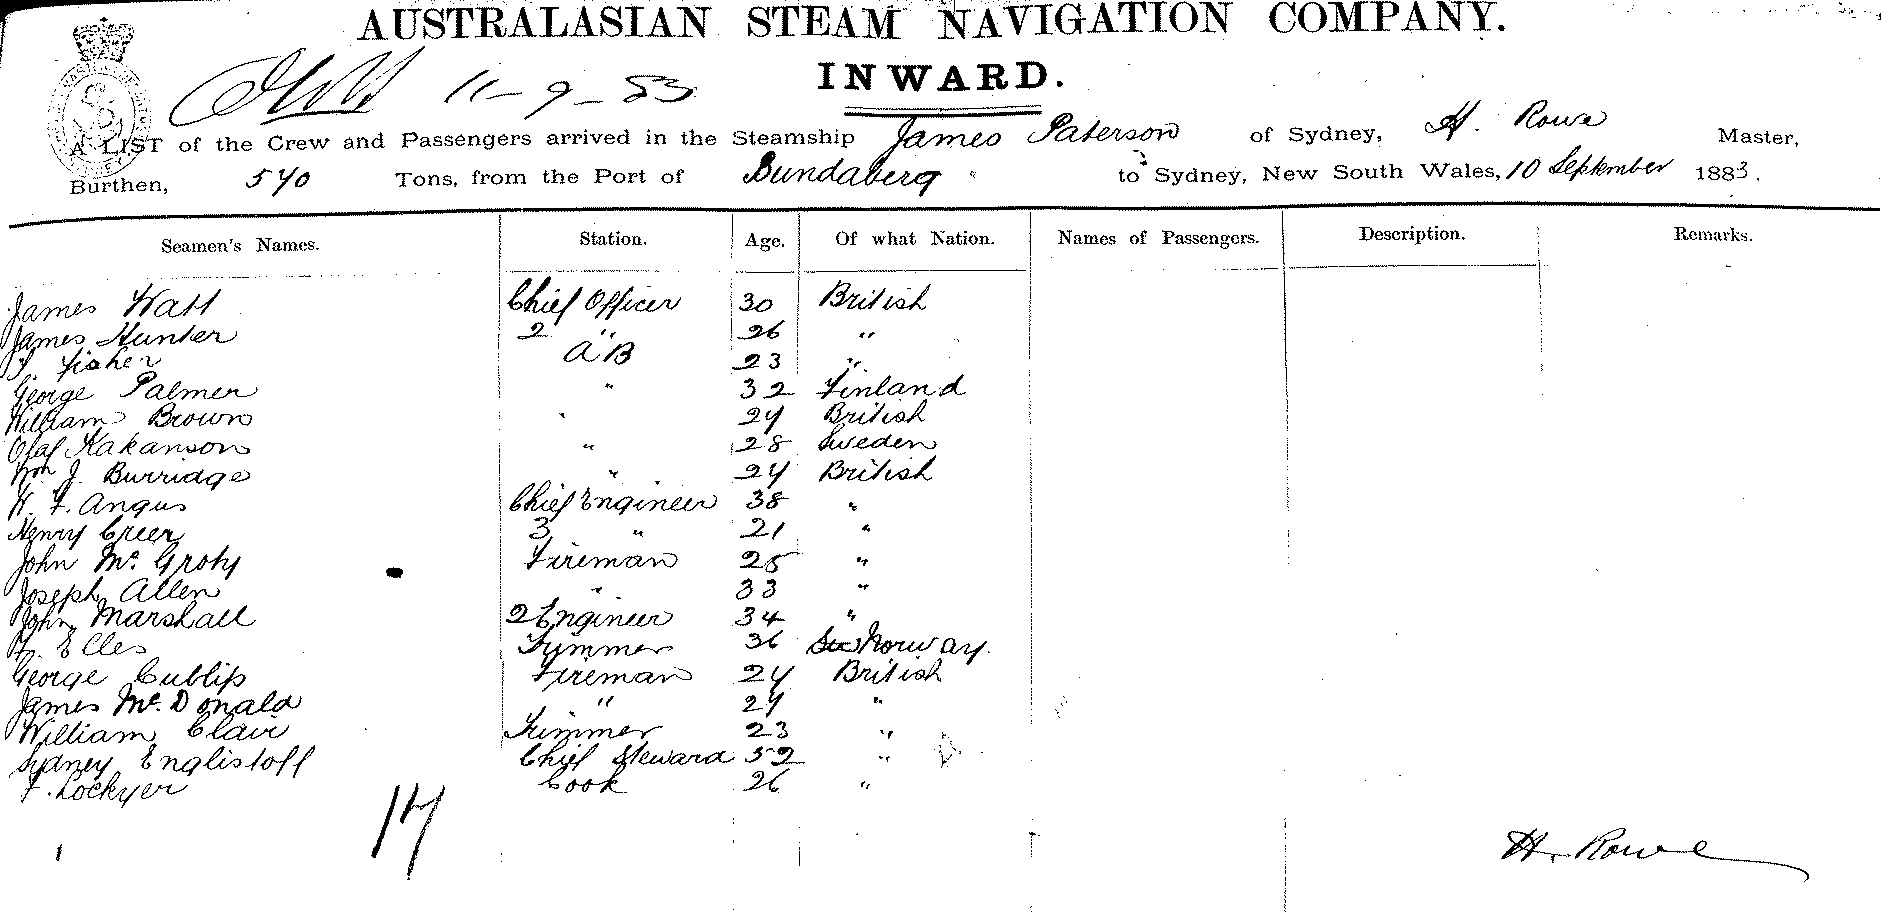 AUSTRALASIAN STEAM NAVIGATION COMPANY.
INWARD.
11-9-83
A LIST of the Crew and Passengers arrived in the Steamship James Paterson of Sydney, H. Rowe Master,
Burthen, 540 Tons, from the Port of Bundaberg to Sydney, New South Wales, 10 September 1883.
Seamen's Names. Station. Age. Of what Nation. Names of Passengers. Description. Remarks.
James Watt Chief Officer 30 British
James Hunter 2 " 26 "
Fisher AB 23 "
George Palmer " 32 Finland
William Brown " 24 British
Olaf Kakanson " 28 Sweden
Wm J. Burridge " 24 British
W. F. Angus Chief Engineer 38 "
Henry Creer 3 " 21 "
John Mc. Groty Fireman 25 "
Joseph Allen " 33 "
John Marshall 2 Engineer 34 "
Elles Trimmer 36 Norway.
George Cublip Fireman 24 British
James Mc. Donald " 24 "
William Clair Trimmer 23 "
Sydney Englistoff Chief Steward 52 "
F. Lockyer Cook 26 "
17
1
H. Rowe